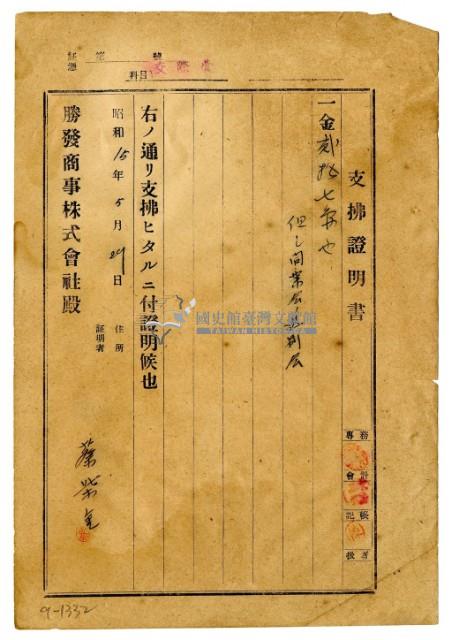 証憑 第 號
科目 交際費
支拂證明書
一金貳拾七円也
但し
右ノ通リ支拂ヒタルニ付證明候也
昭和15年5月29日
住所
証明者
蔡
勝發商事株式會社殿
專務
會計
記帳
扱者
國史館臺灣文獻館
TAIWAN HISTORICA
9-1332